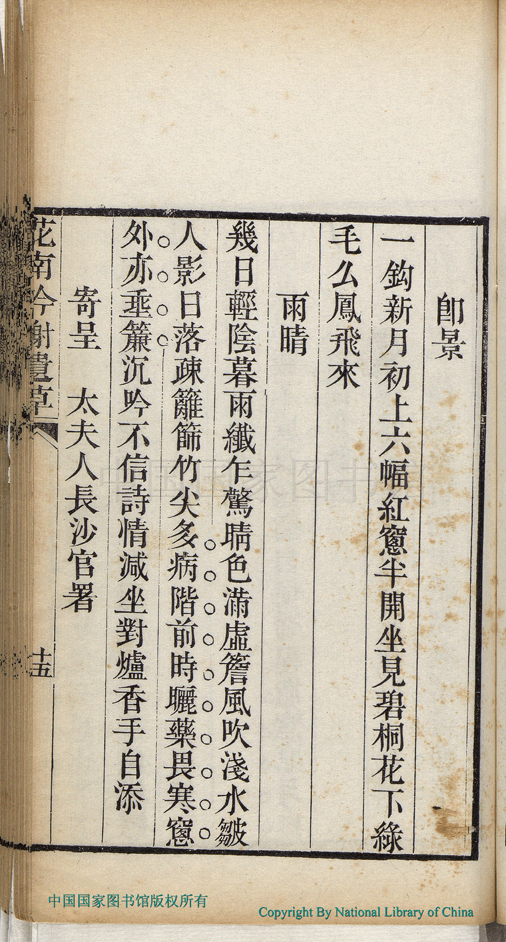 卽景
一鈎新月初上六幅紅窻半開坐見碧桐花下綠
毛么鳳飛來
雨晴
幾日輕陰暮雨纖乍驚晴色滿虛簷風吹淺水皺
人影日落疎籬篩竹尖多病階前時曬藥畏寒窻
外亦垂簾沉吟不信詩情減坐對爐香手自添
寄呈　太夫人長沙官署
花南吟榭遺草
十五
中国国家图书馆
中国国家图书馆版权所有
Copyright By National Library of China